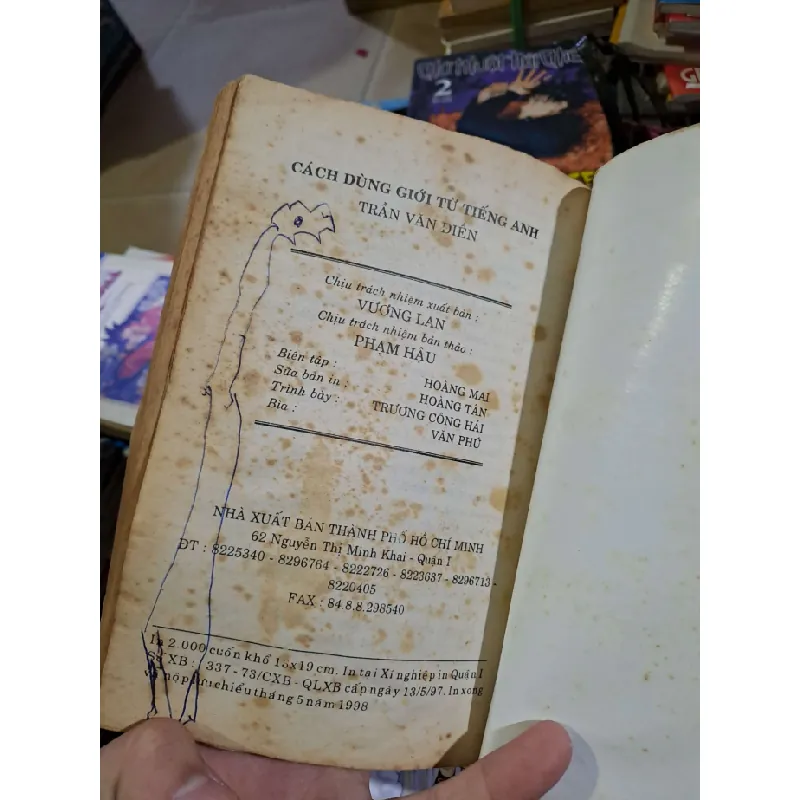 2
CÁCH DÙNG GIỚI TỪ TIẾNG ANH
TRẦN VĂN ĐIỀN
Chịu trách nhiệm xuất bản :
VƯƠNG LAN
Chịu trách nhiệm bản thảo :
PHẠM HẬU
Biên tập : HOÀNG MAI
Sửa bản in : HOÀNG TÂN
Trình bày : TRƯƠNG CÔNG HẢI
Bìa : VĂN PHÚ
NHÀ XUẤT BẢN THÀNH PHỐ HỒ CHÍ MINH
62 Nguyễn Thị Minh Khai - Quận I
ĐT : 8225340 - 8296764 - 8222726 - 8223637 - 8296713 -
8220405
FAX : 84.8.8.298540
In 2.000 cuốn khổ 13x19 cm. In tại Xí nghiệp in Quận I
XB : 337 - 73/CXB - QLXB cấp ngày 13/5/97. In xong
nộp lưu chiểu tháng 5 năm 1998